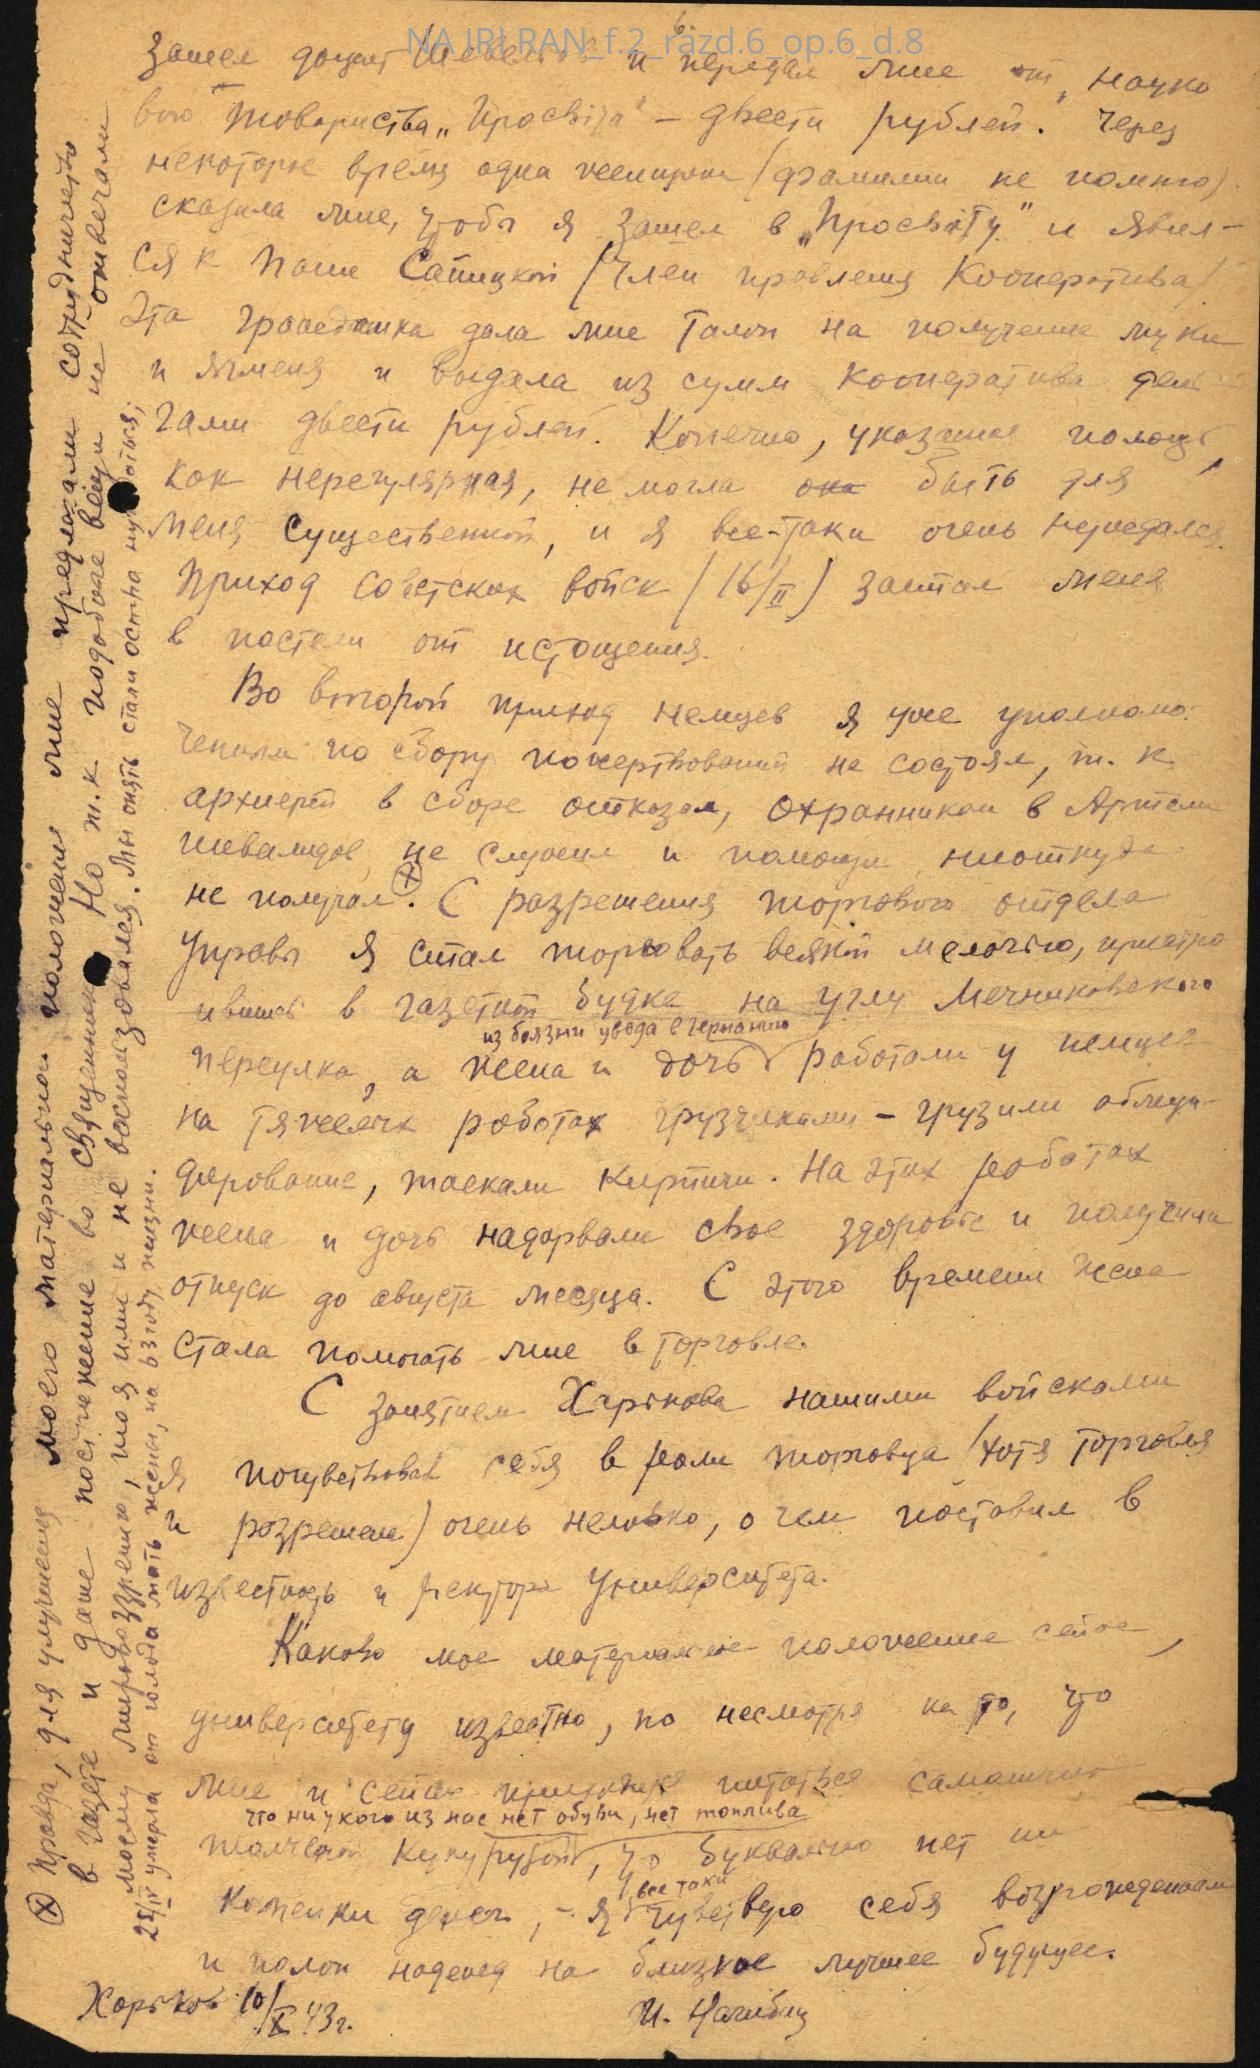 NA IRI RAN_f.2_razd.6_op.6_d.8
6.
зашел доцент и передал мне от „Науко
вого товариства „Просвіта“ – двести рублей. Через
некоторое время одна женщина (фамилии не помню)
сказала мне, чтобы я зашел в „Просвіту“ и явил-
ся к Пани Сапицкой (член правления Кооператива)
Эта гражданка дала мне талон на получение муки
и ячменя и выдала из сумм кооператива день
гами двести рублей. Конечно, указанная помощь,
как нерегулярная, не могла она быть для
меня существенной, и я все-таки очень нуждался.
Приход советских войск (16/II) застал меня
в постели от истощения.
Во второй приход немцев я уже уполномо-
ченным по сбору пожертвований не состоял, т. к.
архиерей в сборе отказал, охранником в Артели
инвалидов не служил и помощи ниоткуда
не получал (х). С разрешения торгового отдела
Управы я стал торговать всякой мелочью, пристро
ившись в газетной будке на углу Мечниковского
из боязни увода в Германию
переулка, а жена и дочь работали у немцев
на тяжелых работах грузчиками – грузили обмун-
дирование, таскали кирпичи. На этих работах
жена и дочь надорвали свое здоровье и получили
отпуск до августа месяца. С этого времени жена
стала помогать мне в торговле.
С занятием Харькова нашими войсками
я почувствовал себя в роли торговца (хотя торговля
и разрешена) очень неловко, о чем поставил в
известность и ректора Университета.
Каково мое материальное положение сейчас,
университету известно, но несмотря на то, что
мне и сейчас приходится питаться
что ни у кого из нас нет обуви, нет топлива
толченой кукурузой, что буквально нет ни
все таки
копейки денег, – я чувствую себя возрожденным
и полон надежд на близкое лучшее будущее.
Харьков 10/X 43 г.
И. Нагибин
(х) Правда, для улучшения моего материального положения мне предлагали сотрудничество
в газете и даже пострижение во священники. Но т. к. подобные вещи не отвечали
моему мировоззрению, то я ими и не воспользовался. Мы опять стали остро нуждаться;
25/IV умерла от голода мать жены, на году жизни.